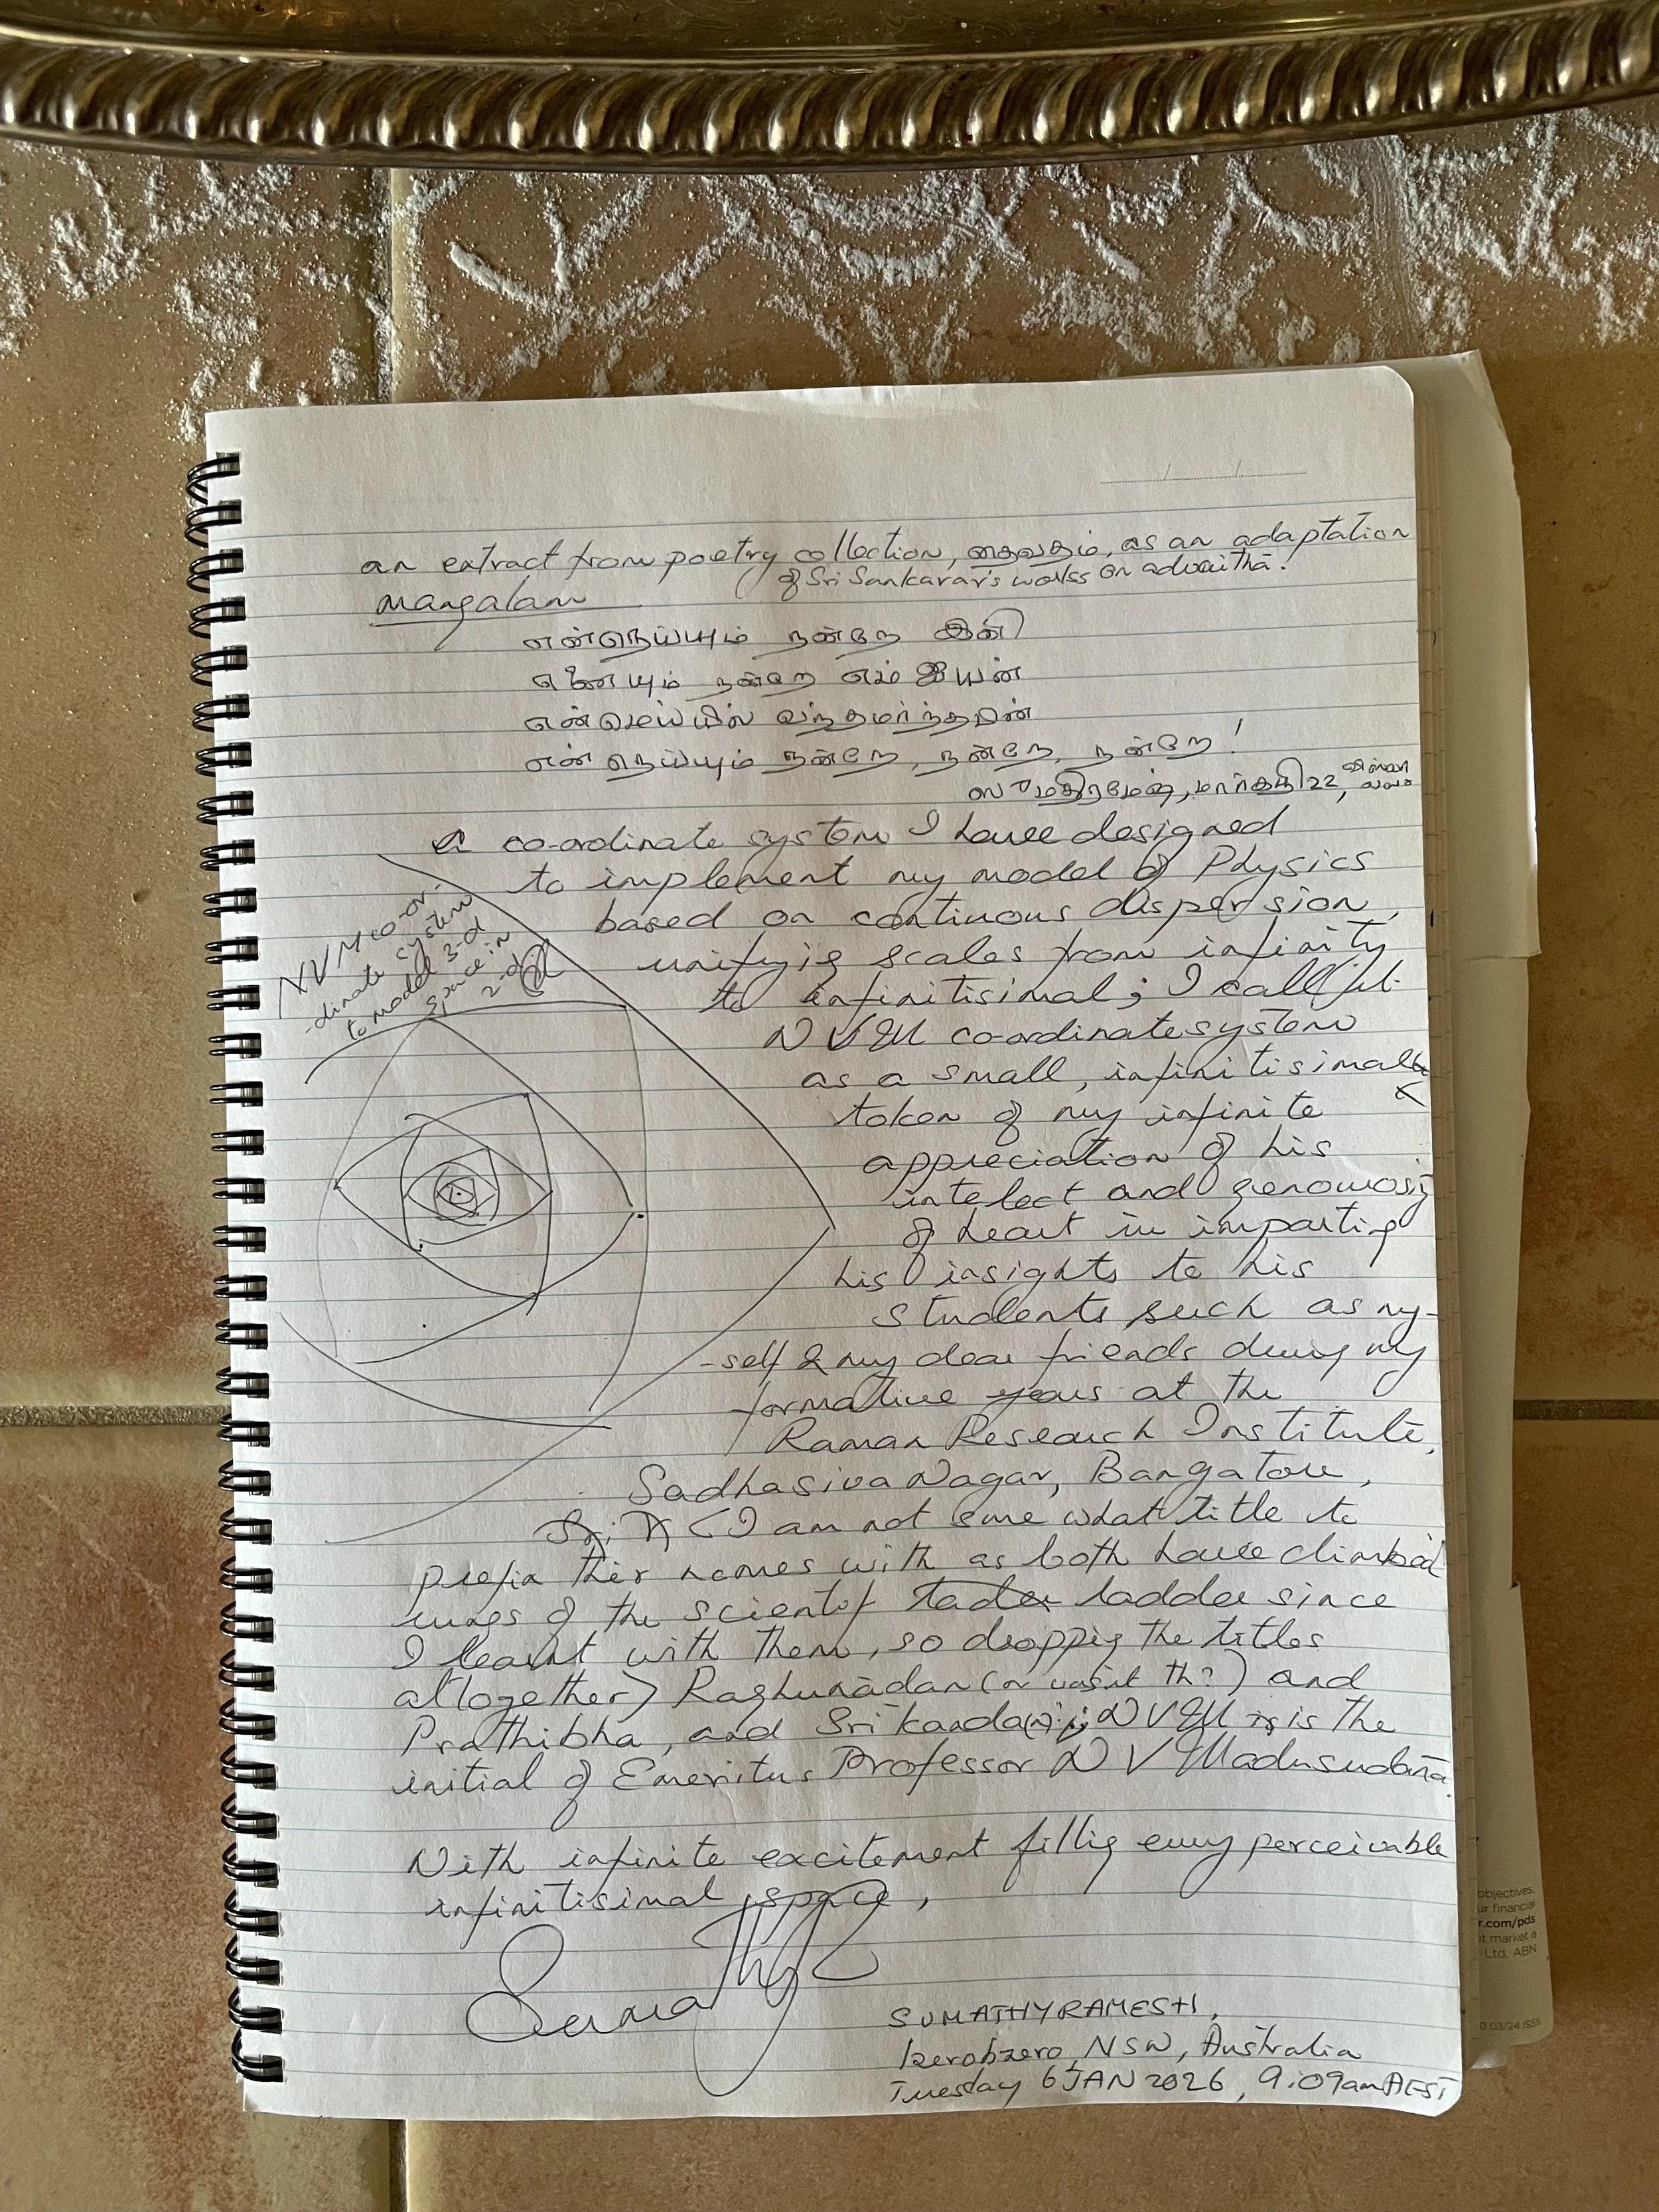 an extract from poetry collection, தைவதம், as an adaptation
of Sri Sankarar's works on advaitha.
Mangalam
என்செய்யும் நன்றே இனி
எனையும் நன்றே எம் ஐயன்
என்மெய்யில் வந்தமர்ந்தபின்
என் செய்யும் நன்றே, நன்றே, நன்றே!
மார்கழி 22,
a co-ordinate system I have designed
to implement my model of Physics
based on continuous dispersion,
unifyig scales from infinity
to infinitisimal; I call it
NVM coordinate system
as a small, infinitisimal
token of my infinite
appreciation of his
intelect and
of heart in imparting
his insights to his
students such as my-
-self & my dear friends during my
formative years at the
Raman Research Institute,
Sadhasiva Nagar, Bangalore,
Sri (I am not sure what title to
prefix their names with as both have climbed
rungs of the ladder since
I learnt with them, so droppig the titles
altogether) Raghunadan (or wasit th?) and
Prathibha, and Srikanda(n); NVM is the
initial of Emeritus Professor N V Madusudana.
With infinite excitement fillig every perceivable
infinitisimal space,
NVM co-or-
-dinate system
to model 3-d
space in
2-d
SUMATHYRAMESH,
NSW, Australia
Tuesday 6 JAN 2026, 9:09am AEST
objectives,
ur financial
r.com/pds
t market a
Ltd, ABN
03/24 ISS3